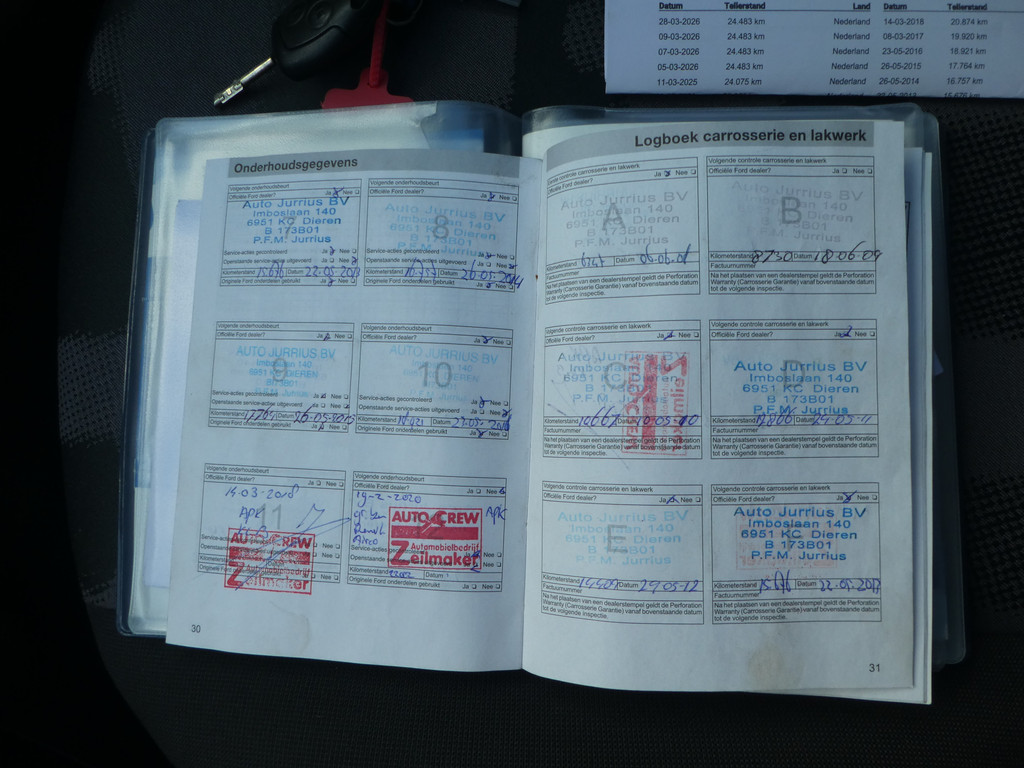 Datum Tellerstand Land Datum Tellerstand
28-03-2026 24.483 km Nederland 14-03-2018 20.874 km
09-03-2026 24.483 km Nederland 08-03-2017 19.920 km
07-03-2026 24.483 km Nederland 23-05-2016 18.921 km
05-03-2026 24.483 km Nederland 26-05-2015 17.764 km
11-03-2025 24.075 km Nederland 26-05-2014 16.757 km
Onderhoudsgegevens
Volgende onderhoudsbeurt
Officiële Ford dealer? Ja Nee
Auto Jurrius BV
Imboslaan 140
6951 KC Dieren
B 173B01
P.F.M. Jurrius
Service-acties gecontroleerd Ja Nee
Openstaande service-acties uitgevoerd Ja Nee
Kilometerstand 15676 Datum 22-05-2013
Originele Ford onderdelen gebruikt Ja Nee
Volgende onderhoudsbeurt
Officiële Ford dealer? Ja Nee
8
Auto Jurrius BV
Imboslaan 140
6951 KC Dieren
B 173B01
P.F.M. Jurrius
Service-acties gecontroleerd Ja Nee
Openstaande service-acties uitgevoerd Ja Nee
Kilometerstand 16.757 Datum 26-05-2014
Originele Ford onderdelen gebruikt Ja Nee
Volgende onderhoudsbeurt
Officiële Ford dealer? Ja Nee
9
AUTO JURRIUS BV
Imboslaan 140
6951KG DIEREN
B173B01
Service-acties gecontroleerd Ja Nee
Openstaande service-acties uitgevoerd Ja Nee
Kilometerstand 17764 Datum 26-05-2015
Originele Ford onderdelen gebruikt Ja Nee
Volgende onderhoudsbeurt
Officiële Ford dealer? Ja Nee
10
AUTO JURRIUS BV
Service-acties gecontroleerd Ja Nee
Openstaande service-acties uitgevoerd Ja Nee
Kilometerstand 18.921 Datum 23-05-2016
Originele Ford onderdelen gebruikt Ja Nee
Volgende onderhoudsbeurt
Officiële Ford dealer? Ja Nee
14-03-2018
APK
11
AUTO CREW
Automobielbedrijf
Zeilmaker
Volgende onderhoudsbeurt
Officiële Ford dealer? Ja Nee
19-2-2020
APK
Airco
AUTO CREW
Automobielbedrijf
Zeilmaker
Kilometerstand Datum
Originele Ford onderdelen gebruikt Ja Nee
30
Logboek carrosserie en lakwerk
Volgende controle carrosserie en lakwerk
Officiële Ford dealer? Ja Nee
A
Auto Jurrius BV
Imboslaan 140
6951 KC Dieren
B 173B01
P.F.M. Jurrius
Kilometerstand Datum
Factuurnummer
Na het plaatsen van een dealerstempel geldt de Perforation
Warranty (Carrosserie Garantie) vanaf bovenstaande datum
tot de volgende inspectie.
Volgende controle carrosserie en lakwerk
Officiële Ford dealer? Ja Nee
B
Auto Jurrius BV
Imboslaan 140
6951 KC Dieren
B 173B01
P.F.M. Jurrius
Kilometerstand 8730 Datum 18-06-09
Factuurnummer
Na het plaatsen van een dealerstempel geldt de Perforation
Warranty (Carrosserie Garantie) vanaf bovenstaande datum
tot de volgende inspectie.
Volgende controle carrosserie en lakwerk
Officiële Ford dealer? Ja Nee
Auto Jurrius BV
Imboslaan 140
6951 KC Dieren
B 173B01
P.F.M. Jurrius
Zeilmaker
Kilometerstand 10667 Datum 10-05-10
Factuurnummer
Na het plaatsen van een dealerstempel geldt de Perforation
Warranty (Carrosserie Garantie) vanaf bovenstaande datum
tot de volgende inspectie.
Volgende controle carrosserie en lakwerk
Officiële Ford dealer? Ja Nee
D
Auto Jurrius BV
Imboslaan 140
6951 KC Dieren
B 173B01
P.F.M. Jurrius
Kilometerstand Datum
Factuurnummer
Na het plaatsen van een dealerstempel geldt de Perforation
Warranty (Carrosserie Garantie) vanaf bovenstaande datum
tot de volgende inspectie.
Volgende controle carrosserie en lakwerk
Officiële Ford dealer? Ja Nee
E
Auto Jurrius BV
Imboslaan 140
6951 KC Dieren
B 173B01
P.F.M. Jurrius
Kilometerstand Datum 29-05-12
Factuurnummer
Na het plaatsen van een dealerstempel geldt de Perforation
Warranty (Carrosserie Garantie) vanaf bovenstaande datum
tot de volgende inspectie.
Volgende controle carrosserie en lakwerk
Officiële Ford dealer? Ja Nee
Auto Jurrius BV
Imboslaan 140
6951 KC Dieren
B 173B01
P.F.M. Jurrius
Kilometerstand 15676 Datum 22-05-2013
Factuurnummer
Na het plaatsen van een dealerstempel geldt de Perforation
Warranty (Carrosserie Garantie) vanaf bovenstaande datum
tot de volgende inspectie.
31